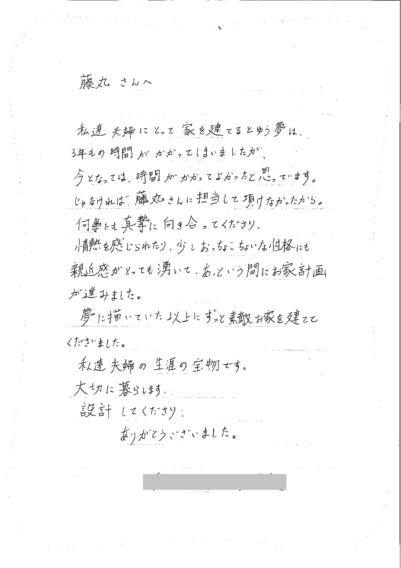 藤丸 さんへ
私達 夫婦にとって 家を建てるとゆう夢は、
3年もの時間が かかってしまいましたが、
今となっては、時間がかかってよかったと思っています。
じゃなければ、藤丸さんに担当して頂けなかったから。
何事にも真摯に向き合ってくださり、
情熱を感じられたり、少しおっちょこちょいな性格にも
親近感がとっても湧いて、あっという間にお家計画
が進みました。
夢に描いていた以上にずっと素敵なお家を建てて
くださいました。
私達夫婦の生涯の宝物です。
大切に暮らします。
設計 してくださり、
ありがとうございました。